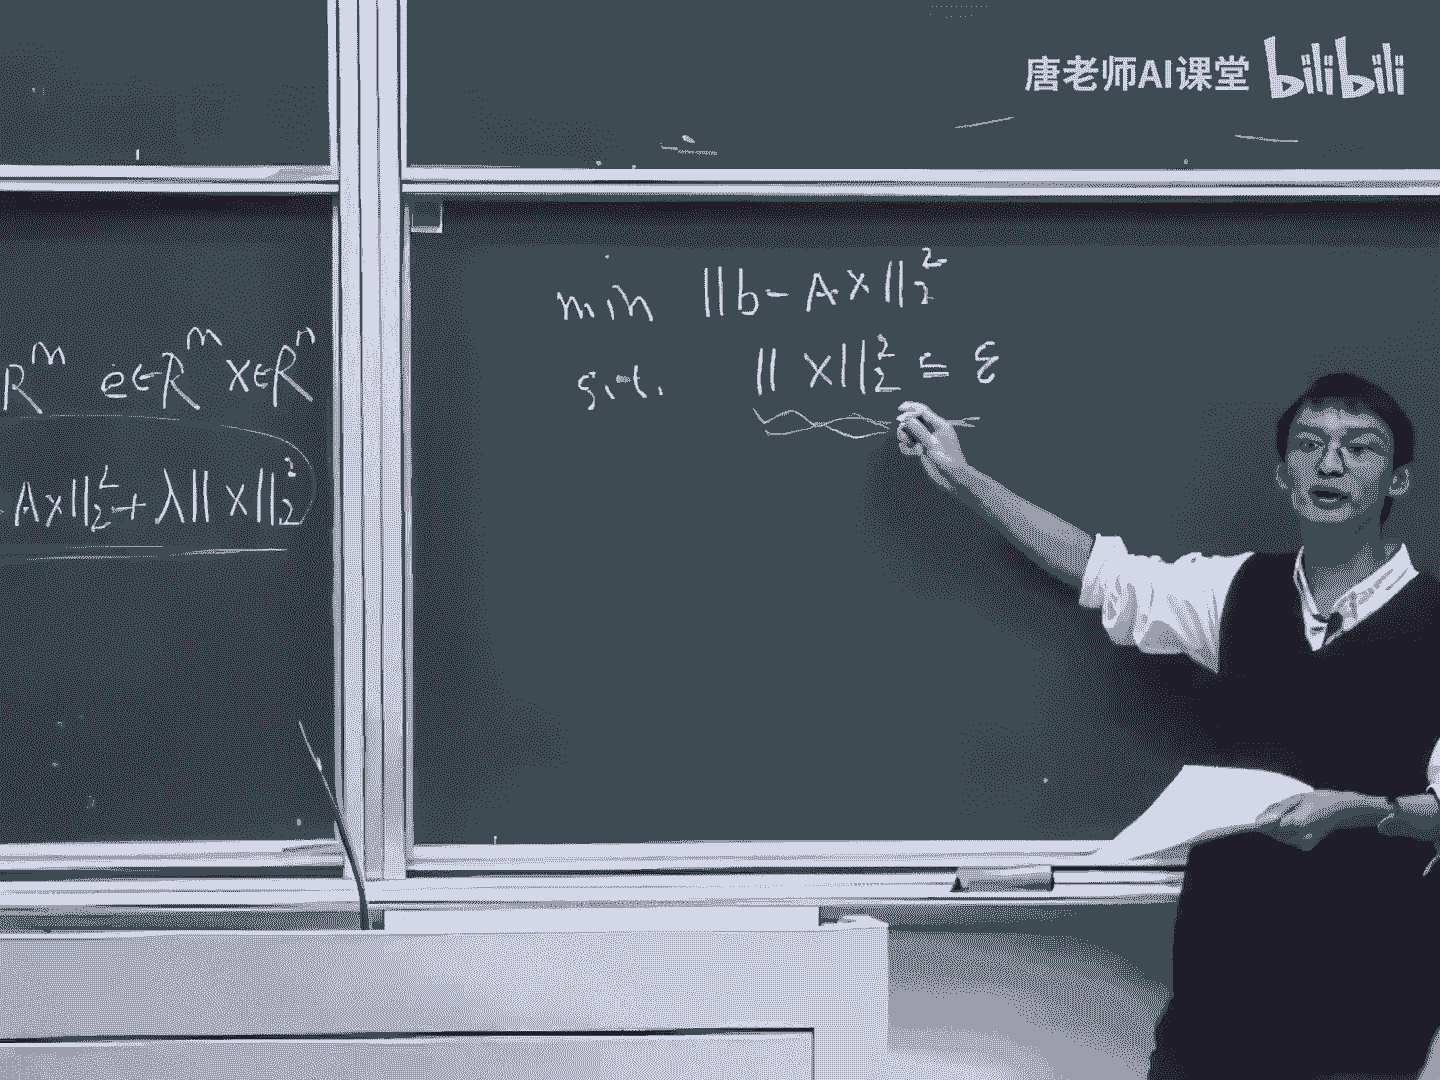 唐老师AI课堂 bilibili
R^m e∈R^m x∈R^n
Ax||_2^2+λ||x||_2^2
min ||b-Ax||_2^2
s.t. ||x||_2^2 ≤ ε